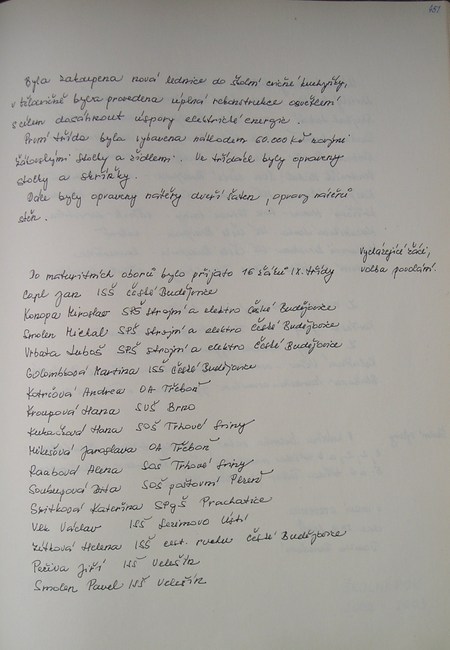 Byla zakoupena nová lednice do školní cvičné kuchyňky,
v tělocvičně byla provedena úplná rekonstrukce osvětlení
s cílem dosáhnout úspory elektrické energie.
První třída byla vybavena nákladem 60.000 Kč novými
žákovskými stolky a židlemi. Ve třídách byly opraveny
stolky a skříňky.
Dále byly opraveny nátěry dveří šaten, opravy nátěrů
stěn.
Vycházející žáci,
volba povolání.
Do maturitních oborů bylo přijato 16 žáků IX. třídy
Capl Jan ISŠ České Budějovice
Konopa Miroslav SPŠ strojní a elektro České Budějovice
Smolen Michal SPŠ strojní a elektro České Budějovice
Vrbata Luboš SPŠ strojní a elektro České Budějovice
Golombková Martina ISŠ České Budějovice
Kotrčová Andrea OA Třeboň
Kroupová Hana SUŠ Brno
Kukačková Hana SOŠ Trhové Sviny
Mikešová Jaroslava OA Třeboň
Raabová Alena SOŠ Trhové Sviny
Soukupová Dita SOŠ poštovní Plzeň
Svitková Kateřina SPgŠ Prachatice
Vlk Václav ISŠ Sezimovo Ústí
Helena ISŠ cest. ruchu České Budějovice
Pečiva Jiří ISŠ Velešín
Smolen Pavel ISŠ Velešín